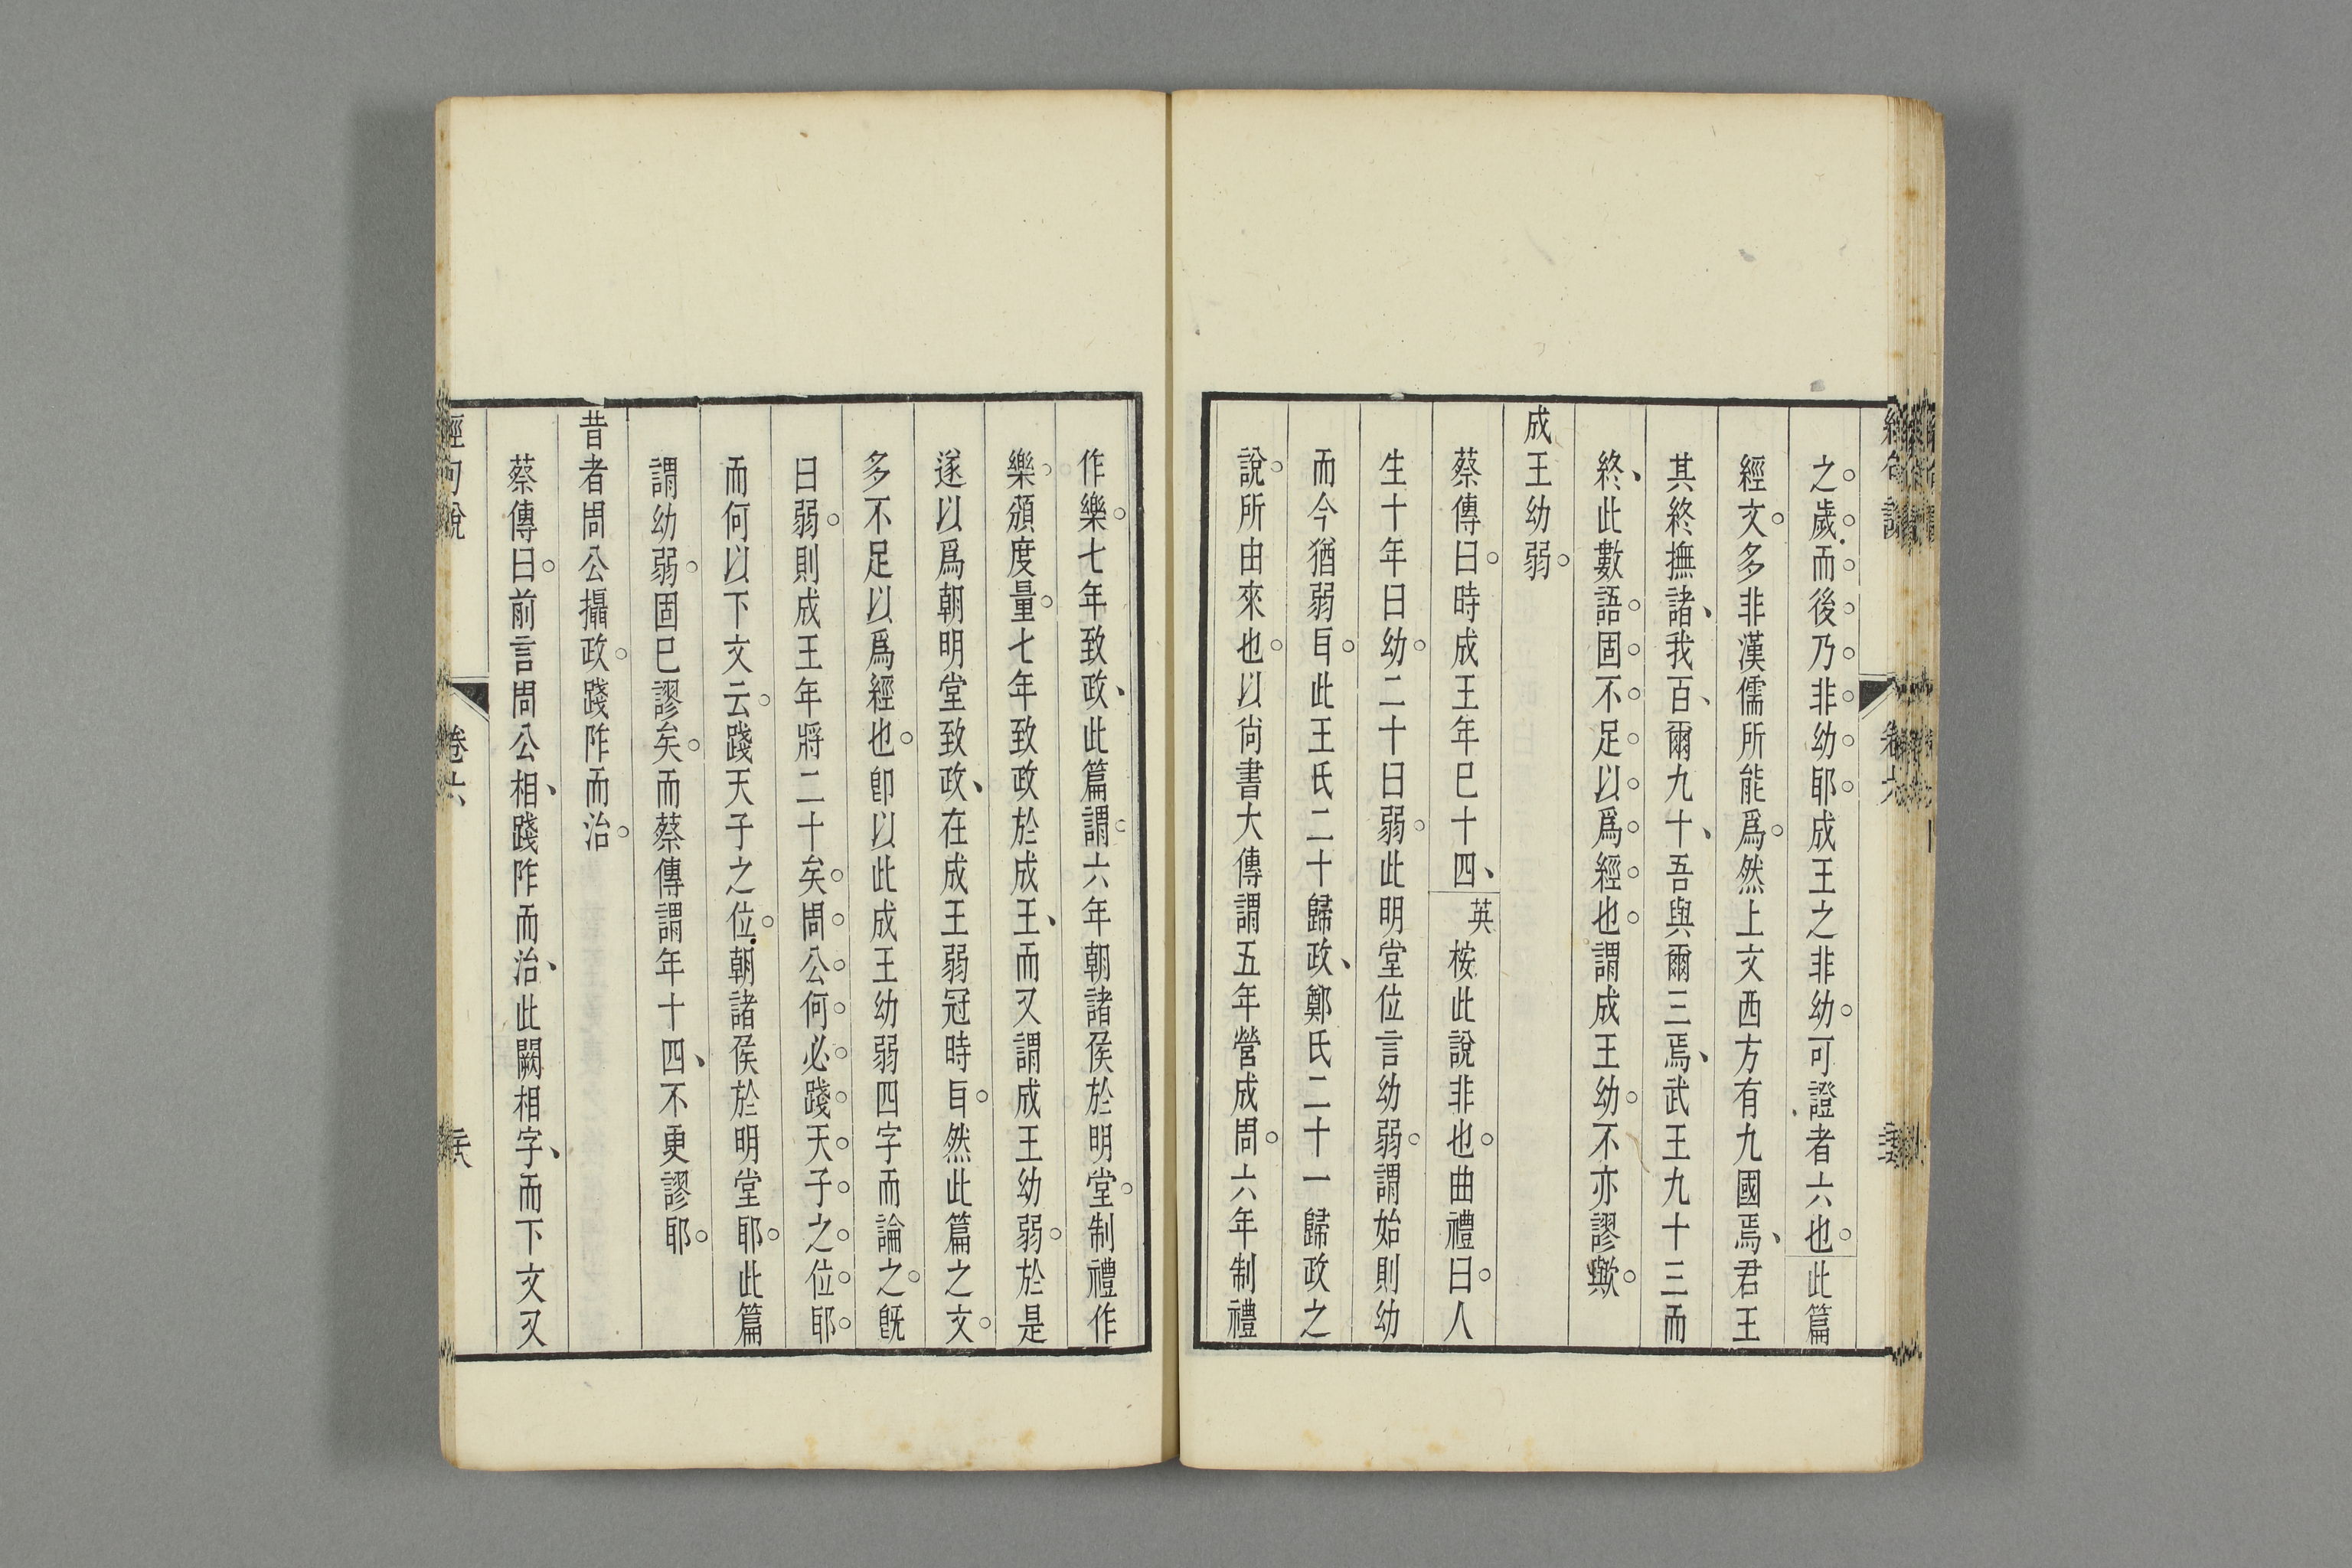 之歲而後乃非幼耶成王之非幼可證者六也此篇
經文多非漢儒所能爲然上文西方有九國焉君王
其終撫諸我百爾九十吾與爾三焉武王九十三而
終此數語固不足以爲經也謂成王幼不亦謬歟
成王幼弱
蔡傳曰時成王年巳十四英桉此說非也曲禮曰人
生十年曰幼二十曰弱此明堂位言幼弱謂始則幼
而今猶弱㠯此王氏二十歸政鄭氏二十一歸政之
說所由來也以尙書大傳謂五年營成周六年制禮
作樂七年致政此篇謂六年朝諸侯於明堂制禮作
樂頒度量七年致政於成王而又謂成王幼弱於是
遂以爲朝明堂致政在成王弱冠時㠯然此篇之文
多不足以爲經也卽以此成王幼弱四字而論之旣
曰弱則成王年將二十矣周公何必踐天子之位耶
而何以下文云踐天子之位朝諸侯於明堂耶此篇
謂幼弱固巳謬矣而蔡傳謂年十四不更謬耶
昔者周公攝政踐阼而治
蔡傳曰前言周公相踐阼而治此闕相字而下文又
經句說 卷六